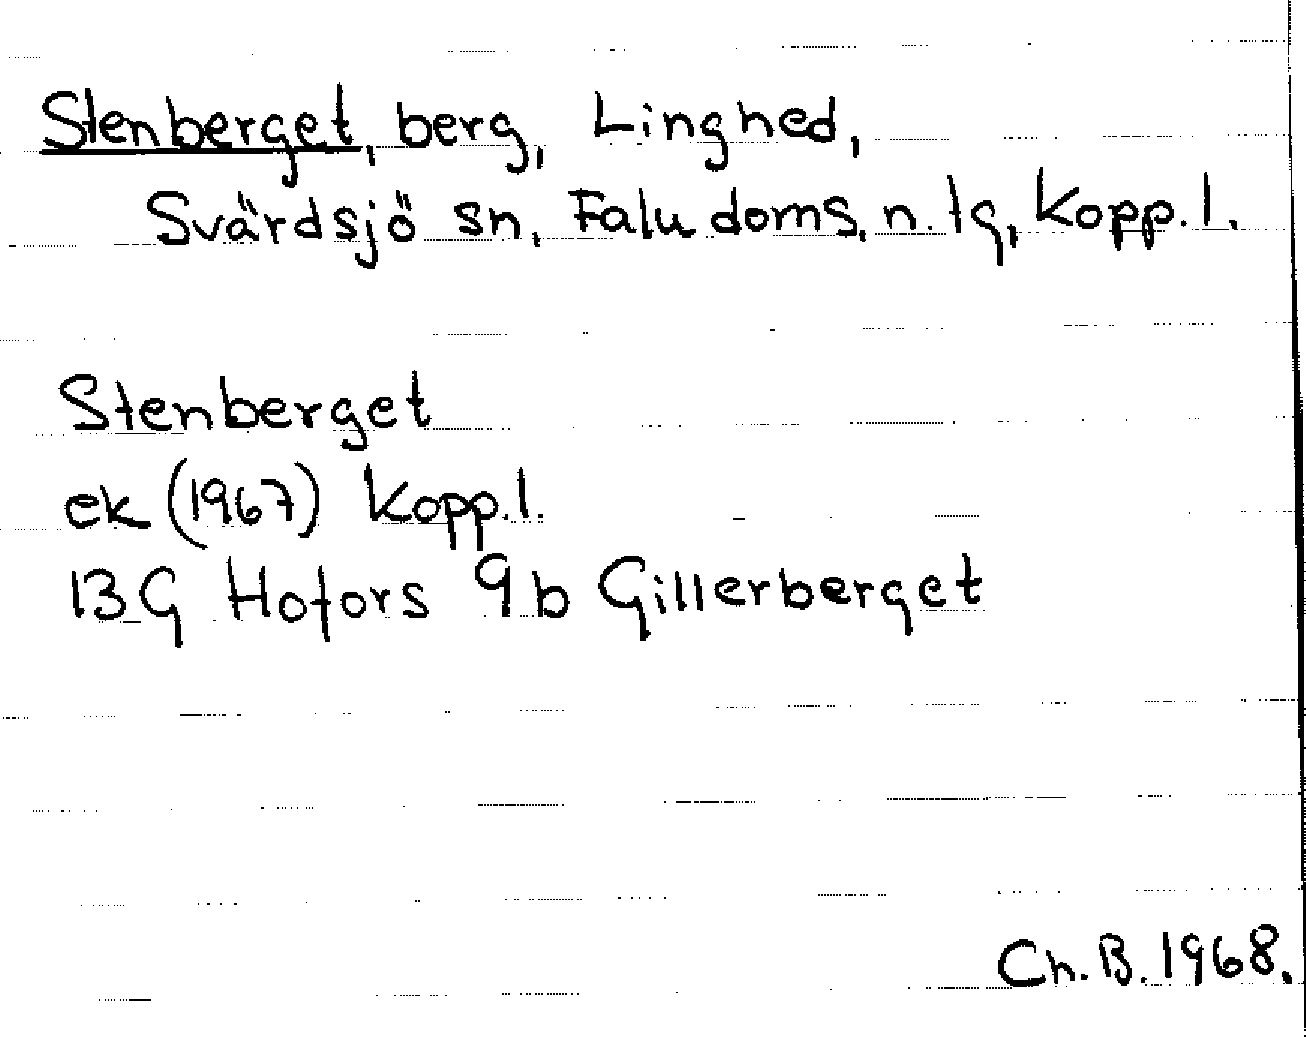 Stenberget, berg, Linghed,
Svärdsjö sn, Falu doms. n. tg, Kopp. l.
Stenberget
ek (1967) Kopp. l.
13G Hofors 9b Gillerberget
Ch. B. 1968.